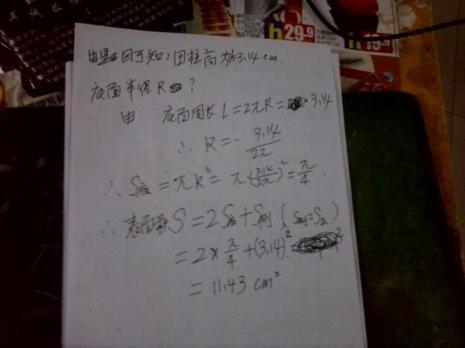 由题目可知,圆柱高为3.14cm.
底面半径R ?
由 底面周长L=2πR= 3.14
∴ R= 3.14/2π
∴ S底=πR²=π(3.14/2π)²=π/4.
∴ 表面积S=2S底+S侧 (S侧=S正)
=2×π/4+(3.14)²
=11.43 cm²
29.9
19.9